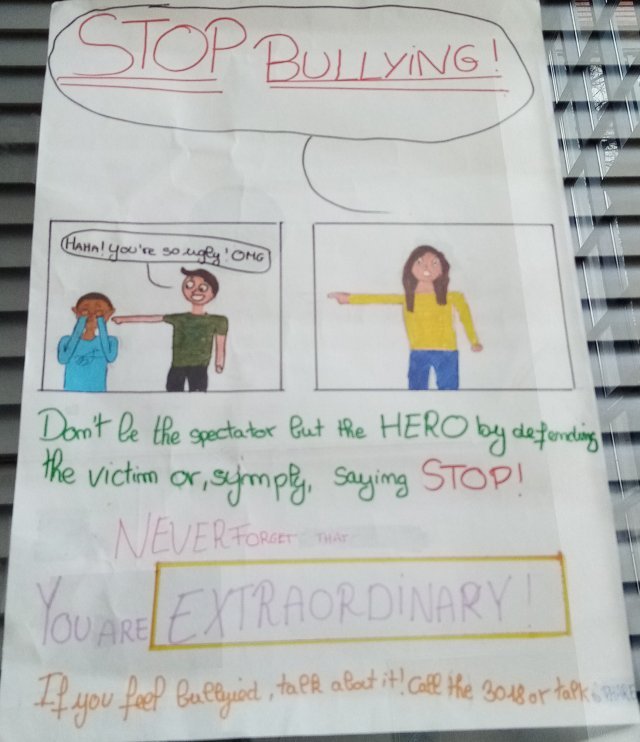 STOP BULLYING!
HAHA! You're so ugly! OMG
Don't be the spectator but the HERO by defending
the victim or, symply, saying STOP!
NEVER FORGET THAT
YOU ARE EXTRAORDINARY!
If you feel bullyied, talk about it! Call the 3018 or talk